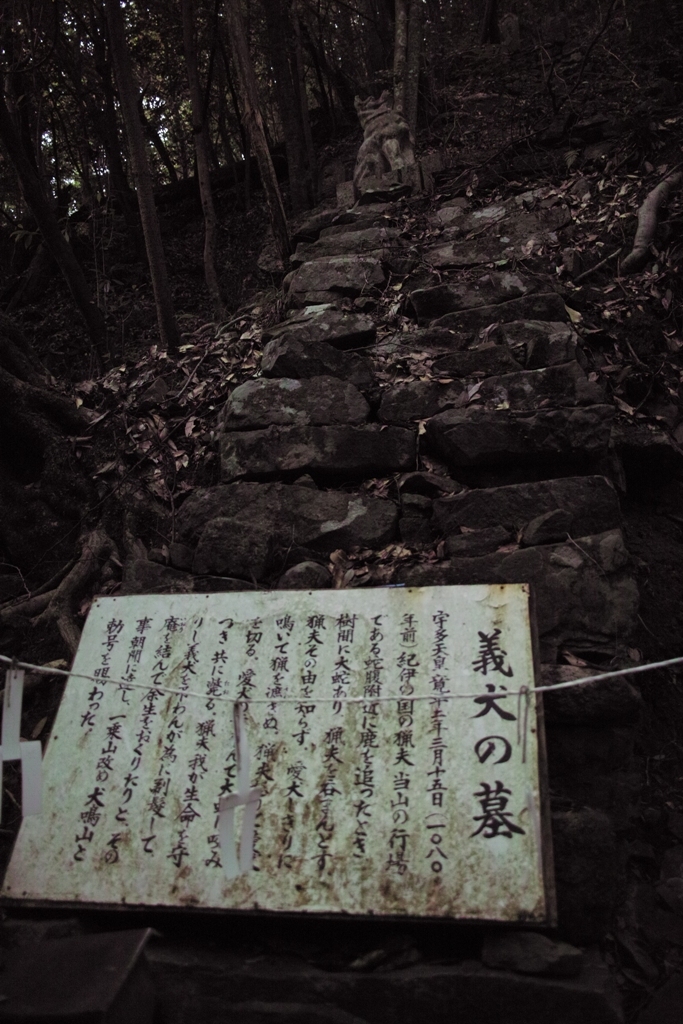 義犬の墓
宇多天皇(寛平二年三月十五日(一〇八〇
年前)紀伊の国の猟夫 当山の行場
である蛇腹附近に鹿を追つたとき
樹間に大蛇あり 猟夫を呑まんとす
猟夫その由を知らず、愛犬しきりに
鳴いて猟を逃きぬ、猟夫
を切る、愛犬 んで大 咬み
つき 共に斃る、猟夫我が生命を守
りし義犬を わんが為に剃髪して
庵を結んで余生をおくりたりと、その
事朝聞に達し、一乗山改め 犬鳴山と
勅号を賜わった。